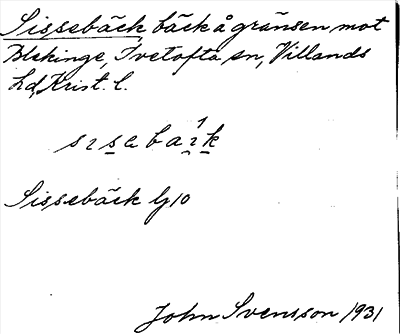 Sissebäck, bäck å gränsen mot
Blekinge, Ivetofta sn, Villands
hd, Krist. l.
Sissebäck lj 10
John Svensson 1931